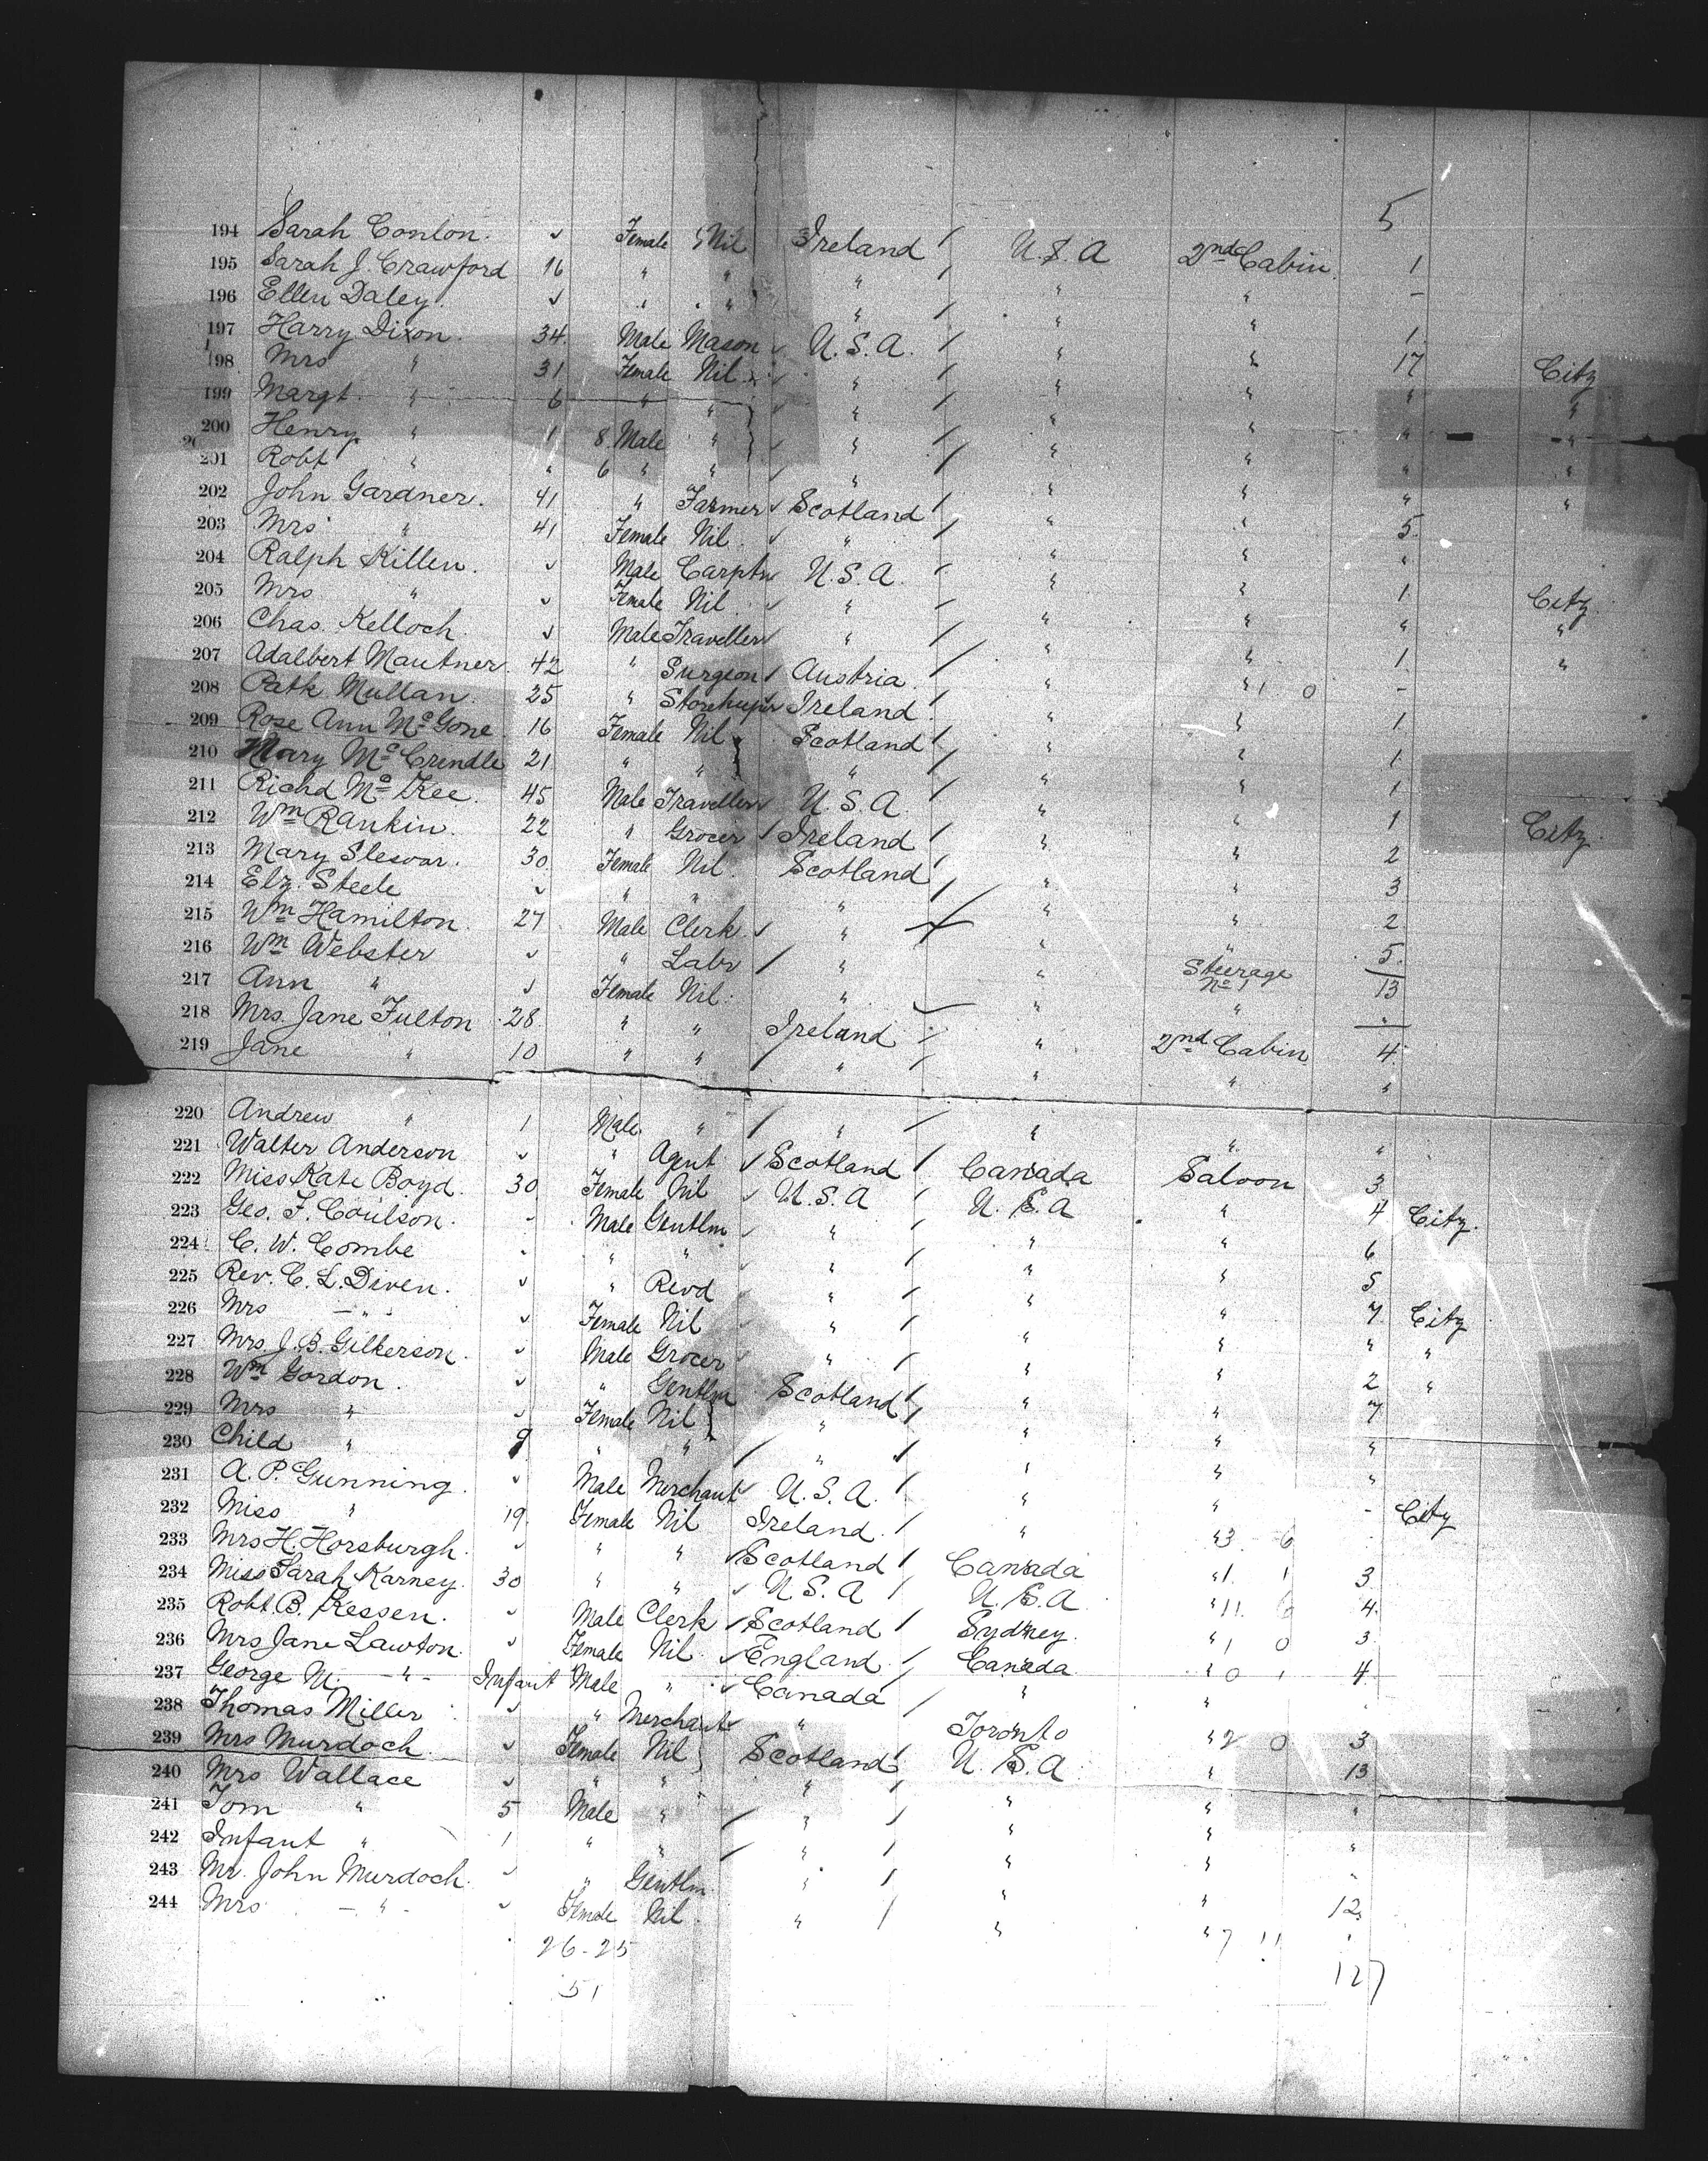 5
194 Sarah Conlon. ✓ Female Nil Ireland U.S.A 2nd Cabin 1
195 Sarah J. Crawford 16 " " " " " -
196 Ellen Daley. ✓ " " " " " 1
197 Harry Dixon. 34 Male Mason U.S.A. " " 17 City
198 Mrs " 31 Female Nil " " " " "
199 Margt. " 6 " " " " " " "
200 Henry " 1 8 Male " " " " " "
201 Robt " " 6 " " " " " " "
202 John Gardner. 41 " Farmer Scotland " " 5
203 Mrs " 41 Female Nil " " " "
204 Ralph Killen. ✓ Male Carptr U.S.A. " " 1 City
205 Mrs " ✓ Female Nil " " " " "
206 Chas. Kelloch ✓ Male Traveller " " " 1 "
207 Adalbert Mautner 42 " Surgeon Austria " " 1 0 -
208 Patk Mullan 25 " Storekeeper Ireland " " 1
209 Rose Ann Mc Gone 16 Female Nil Scotland " " 1
210 Mary Mc Crendle 21 " " " " " 1
211 Richd Mc Kee. 45 Male Traveller U.S.A " " 1 City
212 Wm Rankin. 22 " Grocer Ireland " " 2
213 Mary Slesvar. 30 Female Nil. Scotland " " 3
214 Elz. Steele ✓ " " " " " 2
215 Wm Hamilton. 27 Male Clerk " " " 5
216 Wm Webster ✓ " Labr " " Steerage No 1 13
217 Ann " ✓ Female Nil. " " " "
218 Mrs. Jane Fulton 28 " " Ireland " 2nd Cabin 4
219 Jane " 10 " " " " " "
220 Andrew " 1 Male " " " " "
221 Walter Anderson ✓ " Agent Scotland Canada Saloon 3
222 Miss Kate Boyd. 30 Female Nil U.S.A U.S.A " 4 City.
223 Geo. F. Coulson. - Male Gentlm " " " 6
224 C. W. Combe " " " " " 5
225 Rev. C. L. Diven. ✓ " Revd " " " 7 City
226 Mrs - " - ✓ Female Nil " " " " "
227 Mrs. J. B. Gilkerson. ✓ Male Grocer " " " 2 "
228 Wm Gordon. ✓ " Gentlm Scotland " " 7
229 Mrs " ✓ Female Nil " " " "
230 Child " 9 " " " " " "
231 A. P. Gunning. ✓ Male Merchant U.S.A. " " - City
232 Miss " 19 Female Nil Ireland. " " 3 6
233 Mrs H. Horsburgh. ✓ " " Scotland Canada " 1 1 3
234 Miss Sarah Karney. 30 " " U.S.A U.S.A " 11 6 4
235 Robt. B. Kessen. ✓ Male Clerk Scotland Sydney. " 1 0 3
236 Mrs Jane Lawton. ✓ Female Nil. England Canada " 0 1 4
237 George N. - " - Infant Male " Canada " "
238 Thomas Miller ✓ " Merchant " Toronto " 2 0 3
239 Mrs Murdoch. ✓ Female Nil Scotland U.S.A. " 13
240 Mrs Wallace ✓ " " " " " "
241 Tom " 5 Male " " " " "
242 Infant " 1 " " " " " "
243 Mr. John Murdoch. ✓ " Gentlm " " " 12
244 Mrs - " - ✓ Female Nil. " " " 7 11 "
26-25 127
51